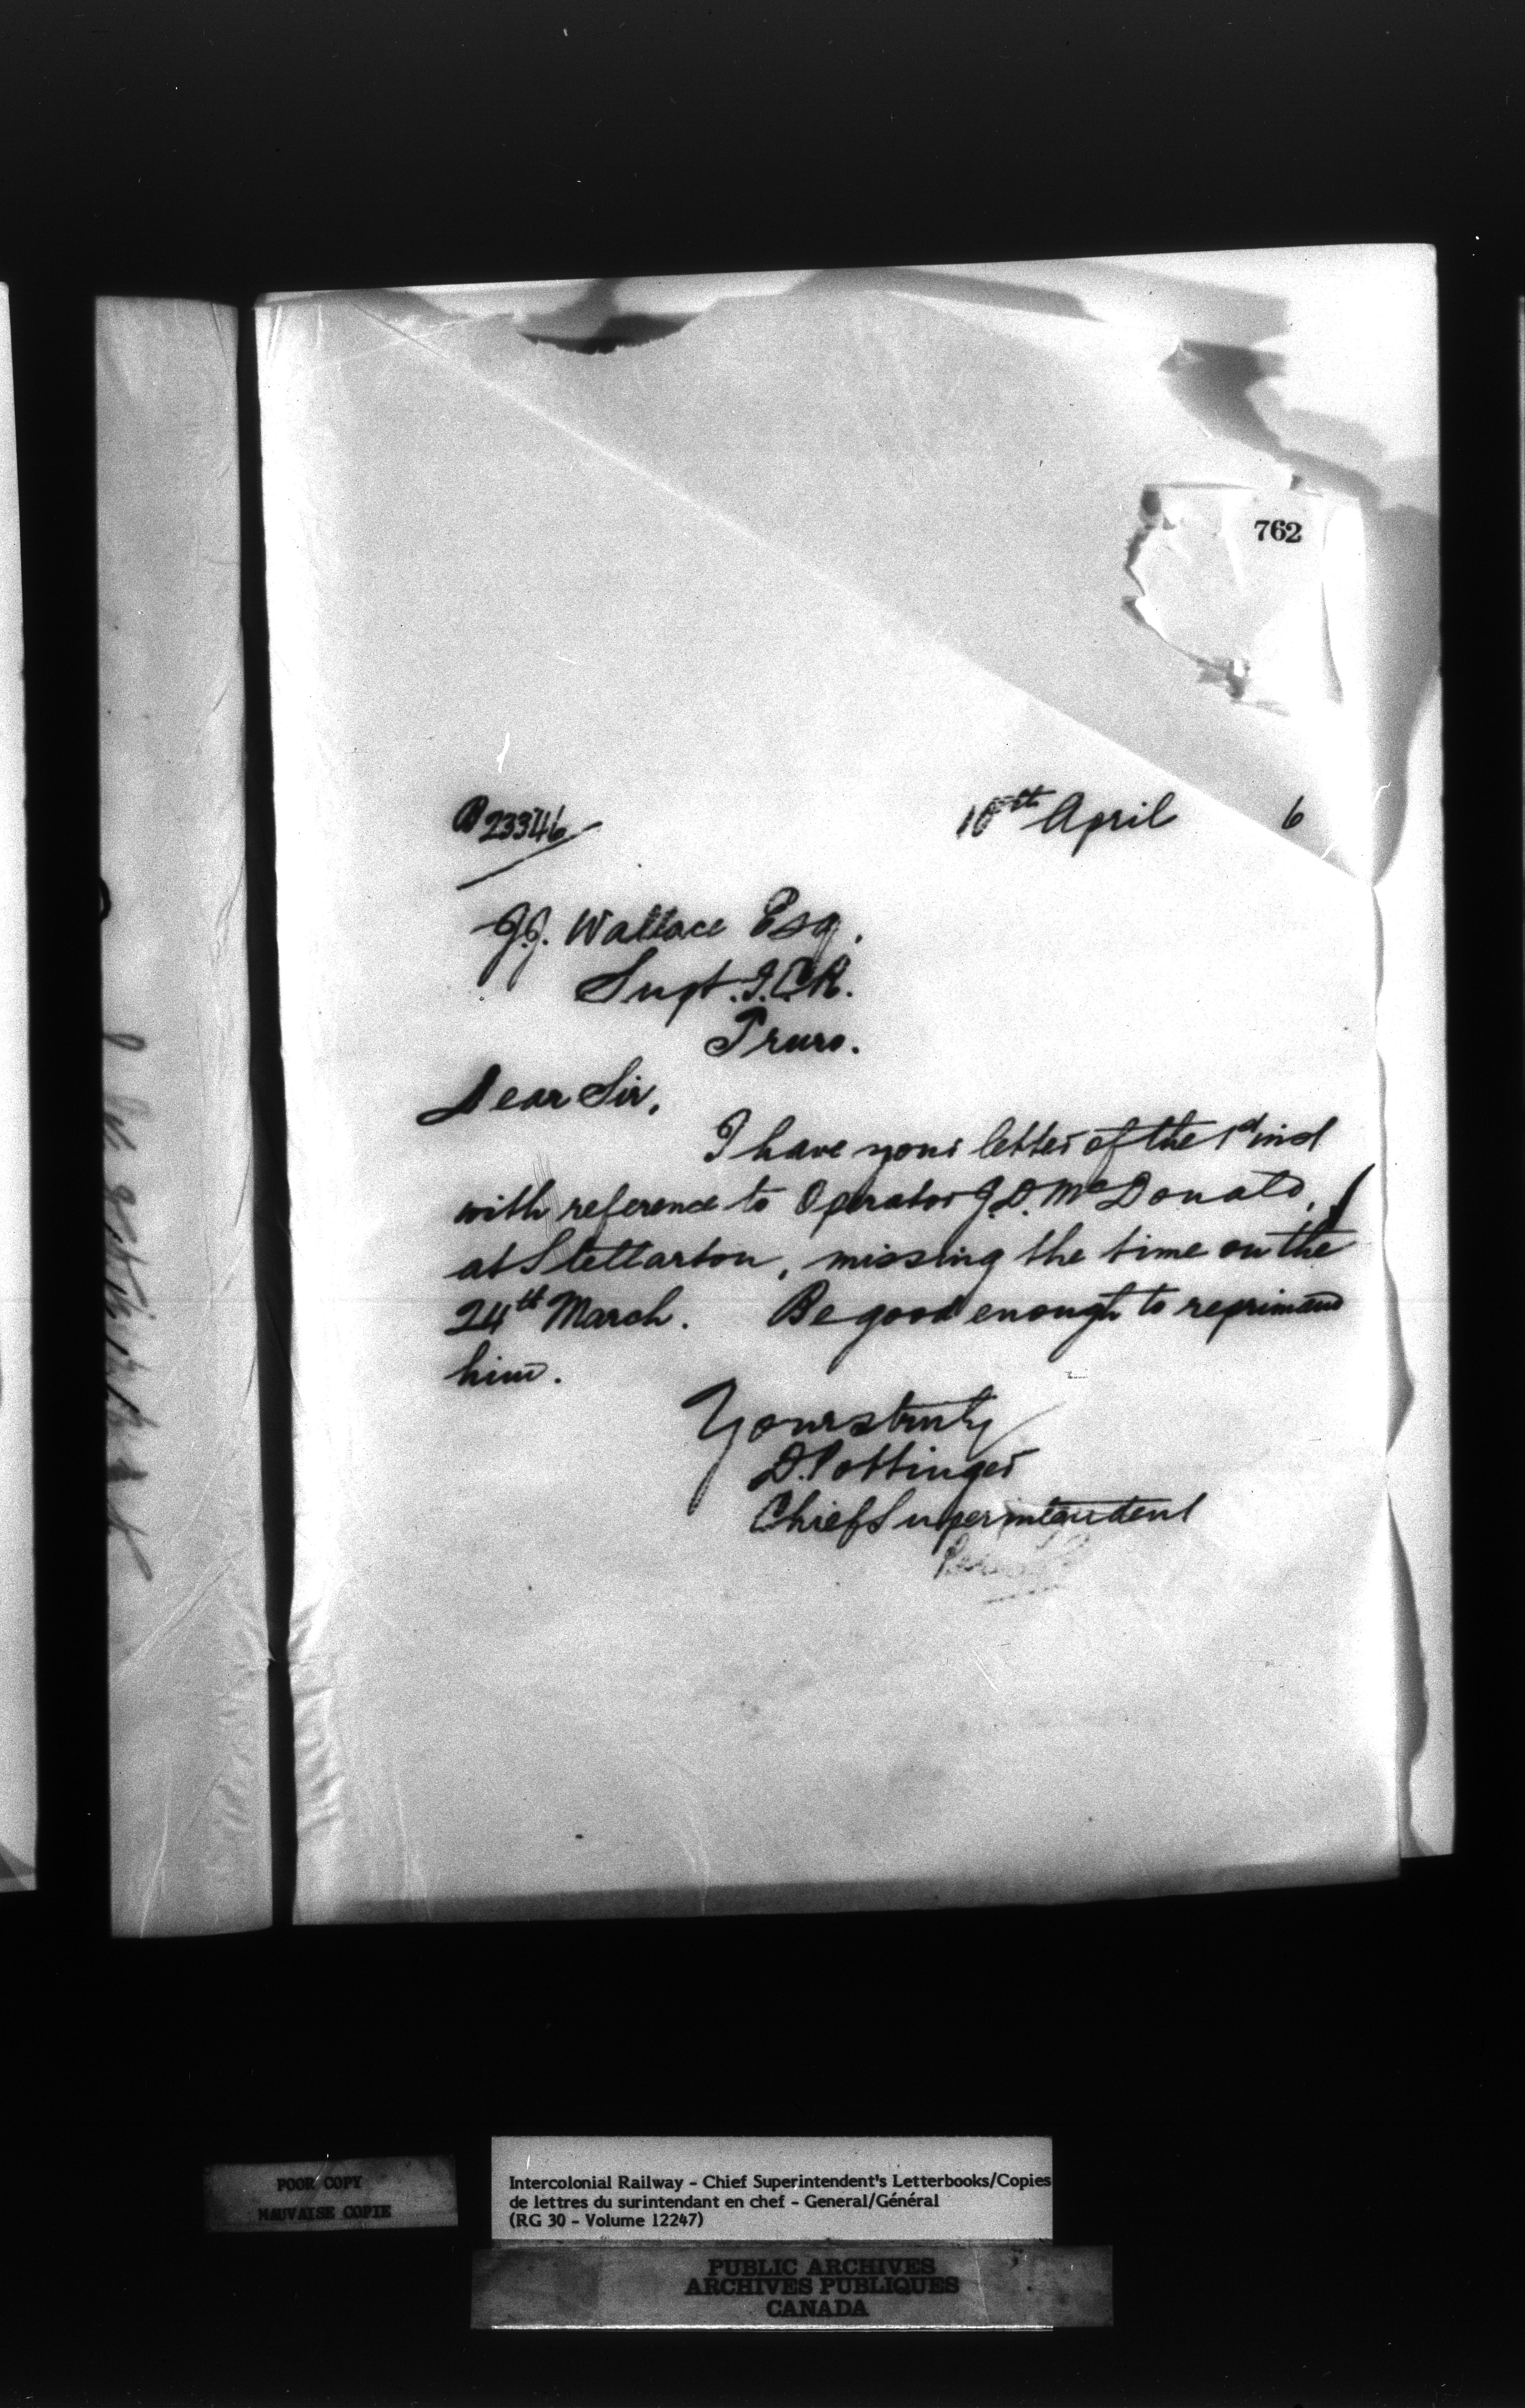 762
23346
10th April 6
J.J. Wallace Esq.
Supt. I.C.R.
Truro.
Dear Sir,
I have your letter of the 1st inst
with reference to Operator J.D. McDonald,
at Stellarton, missing the time on the
24th March. Be good enough to reprimand
him.
Yours truly
D. Pottinger
Chief Superintendent
POOR COPY
MAUVAISE COPIE
Intercolonial Railway - Chief Superintendent's Letterbooks/Copies
de lettres du surintendant en chef - General/Général
(RG 30 - Volume 12247)
PUBLIC ARCHIVES
ARCHIVES PUBLIQUES
CANADA